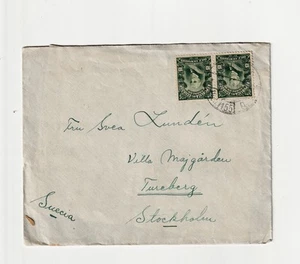 Fru Svea Lundén
Villa Majgården
Tureberg
Stockholm
Suecia